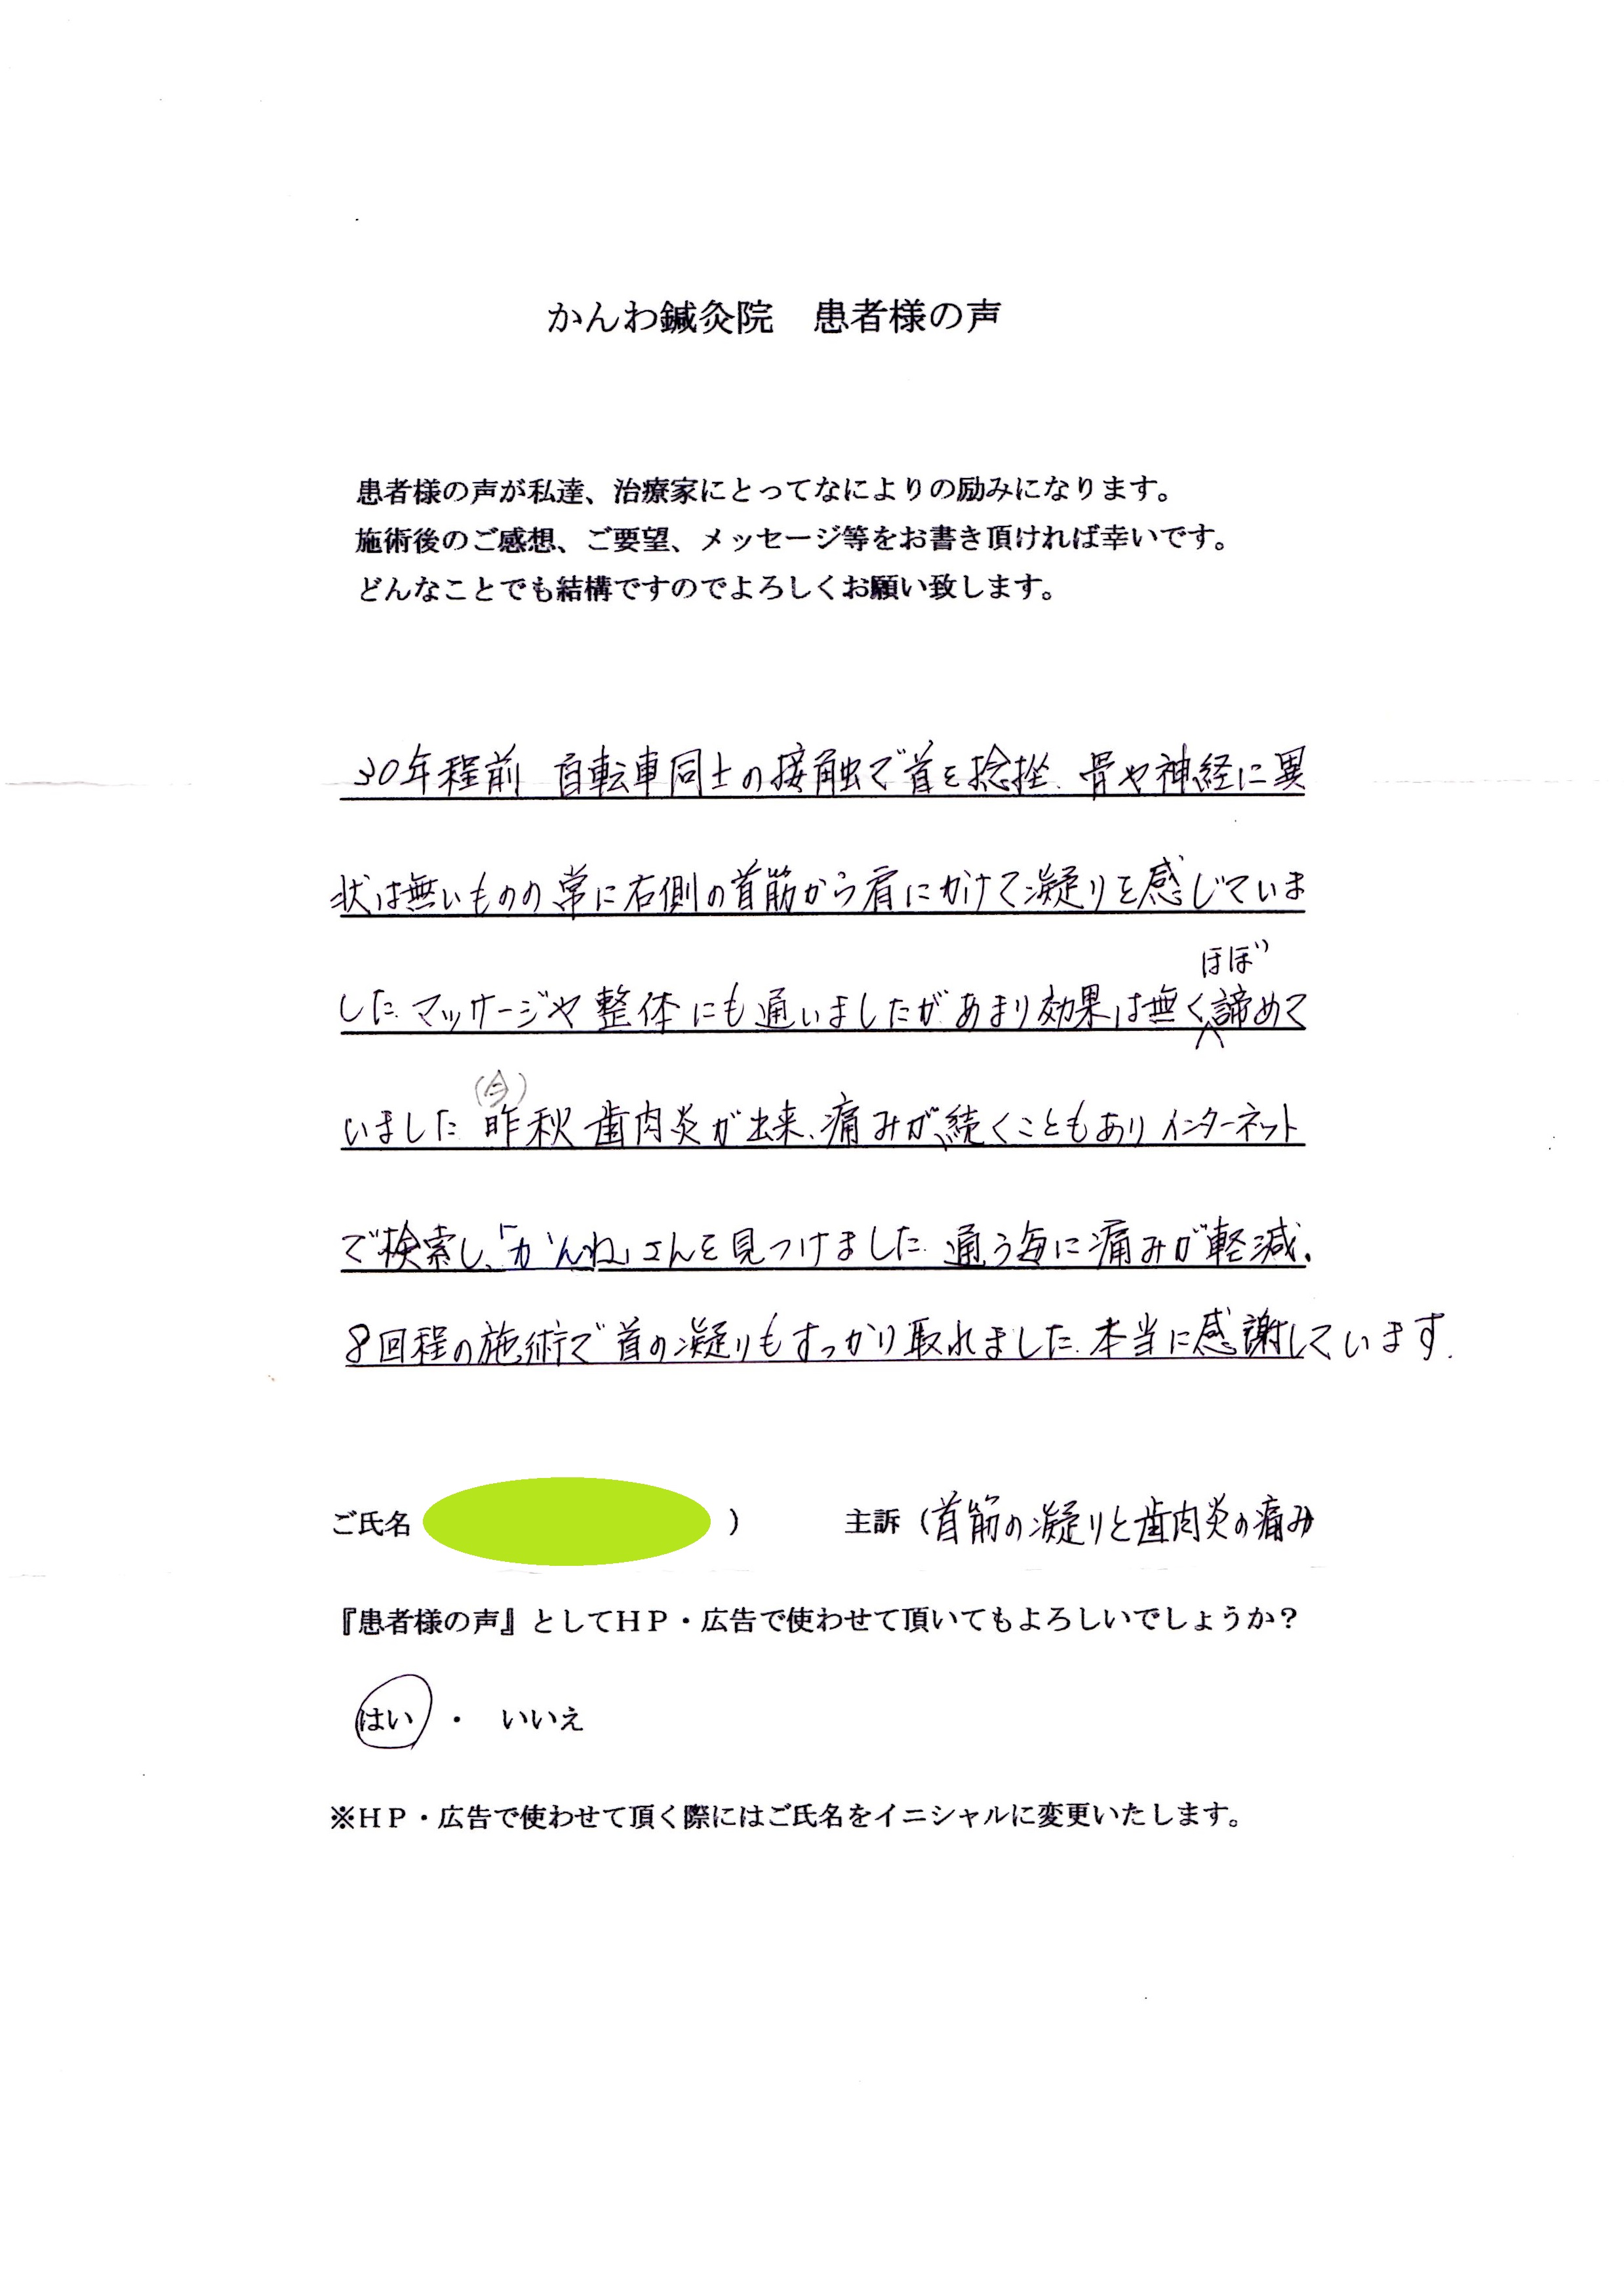 かんわ鍼灸院　患者様の声
患者様の声が私達、治療家にとってなによりの励みになります。
施術後のご感想、ご要望、メッセージ等をお書き頂ければ幸いです。
どんなことでも結構ですのでよろしくお願い致します。
30年程前 自転車同士の接触で首を捻挫. 骨や神経に異
状は無いものの 常に右側の首筋から肩にかけて凝りを感じていま
ほぼ
した. マッサージや 整体にも通いましたが. あまり効果は無く諦めて
(今)
いました 昨秋 歯肉炎が出来、痛みが続くこともあり インターネット
で検索し、「かんわ」さんを見つけました. 通う毎に痛みが軽減、
8回程の施術で 首の凝りもすっかり取れました. 本当に感謝しています.
ご氏名 ） 主訴（首筋の凝りと歯肉炎の痛み
『患者様の声』としてＨＰ・広告で使わせて頂いてもよろしいでしょうか？
はい ・ いいえ
※ＨＰ・広告で使わせて頂く際にはご氏名をイニシャルに変更いたします。